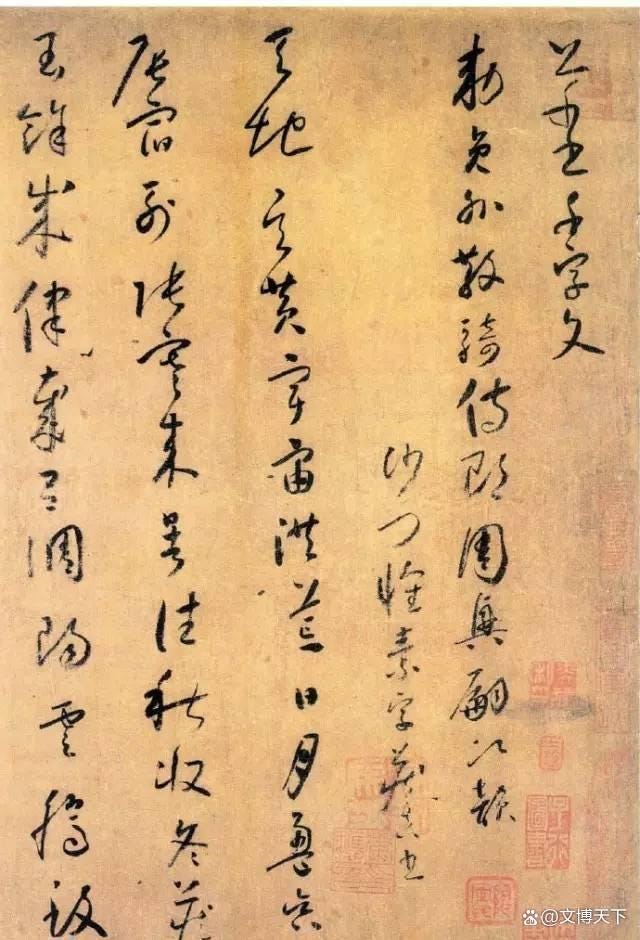 草書千字文
勅員外散騎侍郎周興嗣次韻
沙門懷素字藏真書
天地玄黃宇宙洪荒日月盈昃
辰宿列張寒來暑往秋收冬藏
閏餘成律歲呂調陽雲騰致
@文博天下